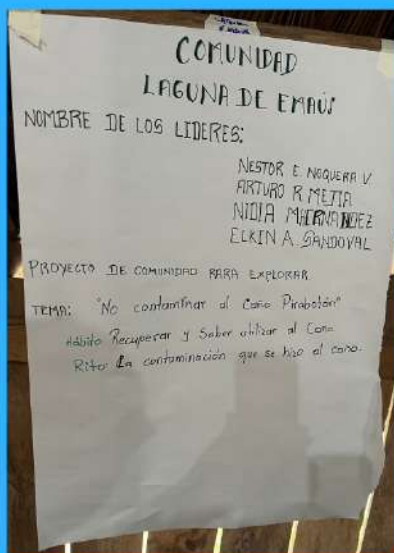 COMUNIDAD
LAGUNA DE EMAÚS
NOMBRE DE LOS LIDERES:
NESTOR E. NOGUERA V
ARTURO R. MEJIA
NIDIA
ELKIN A. SANDOVAL
PROYECTO DE COMUNIDAD PARA EXPLORAR
TEMA: "No contaminar al Caño Pirabotón"
Hábito Recuperar y Saber utilizar al Caño
Rito: La contaminación que se hizo al caño.